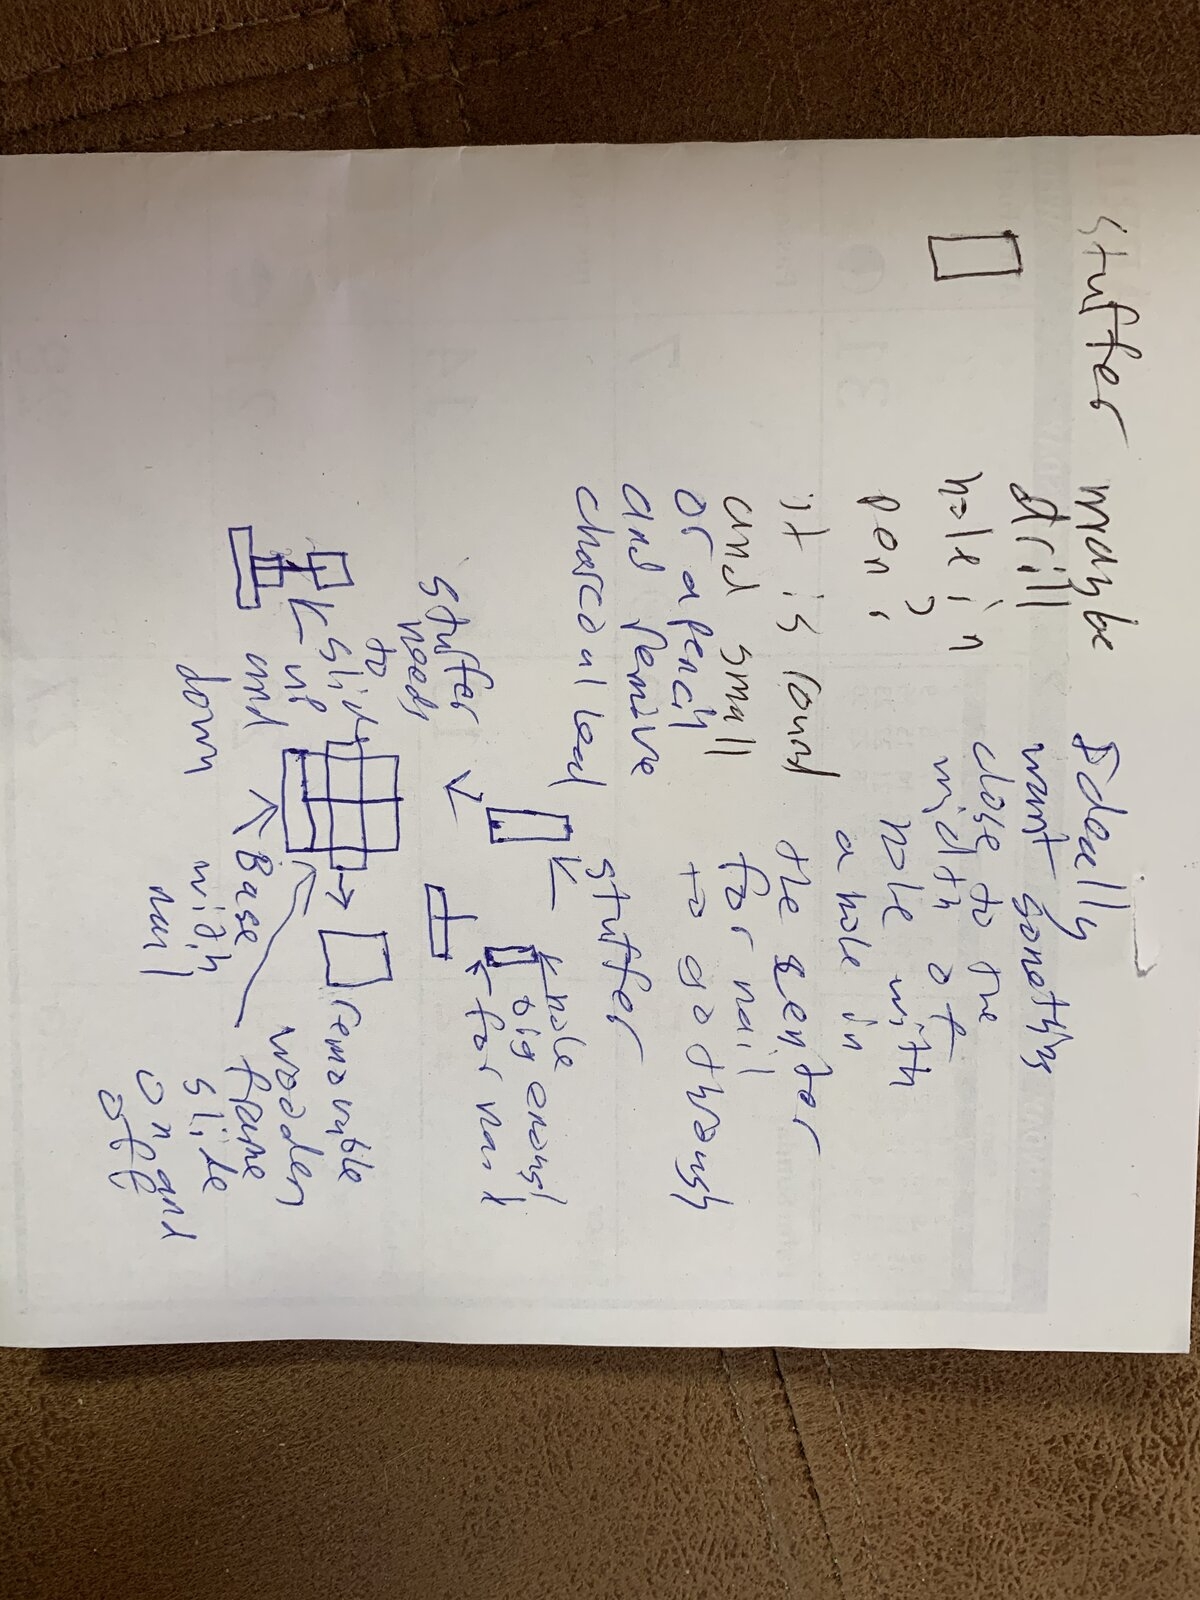 stuffer
maybe
drill
hole in
pen,
it is round
and small
or a pencil
and remove
charcoal lead
Ideally
want somothing
close to the
width of
hole with
a hole in
the senter
for nail
to go through
stuffer
hole
big enough
for nail
stuffer
needs
to
slide
up
and
down
Base
with
nail
removible
wooden
frame
slide
on and
off